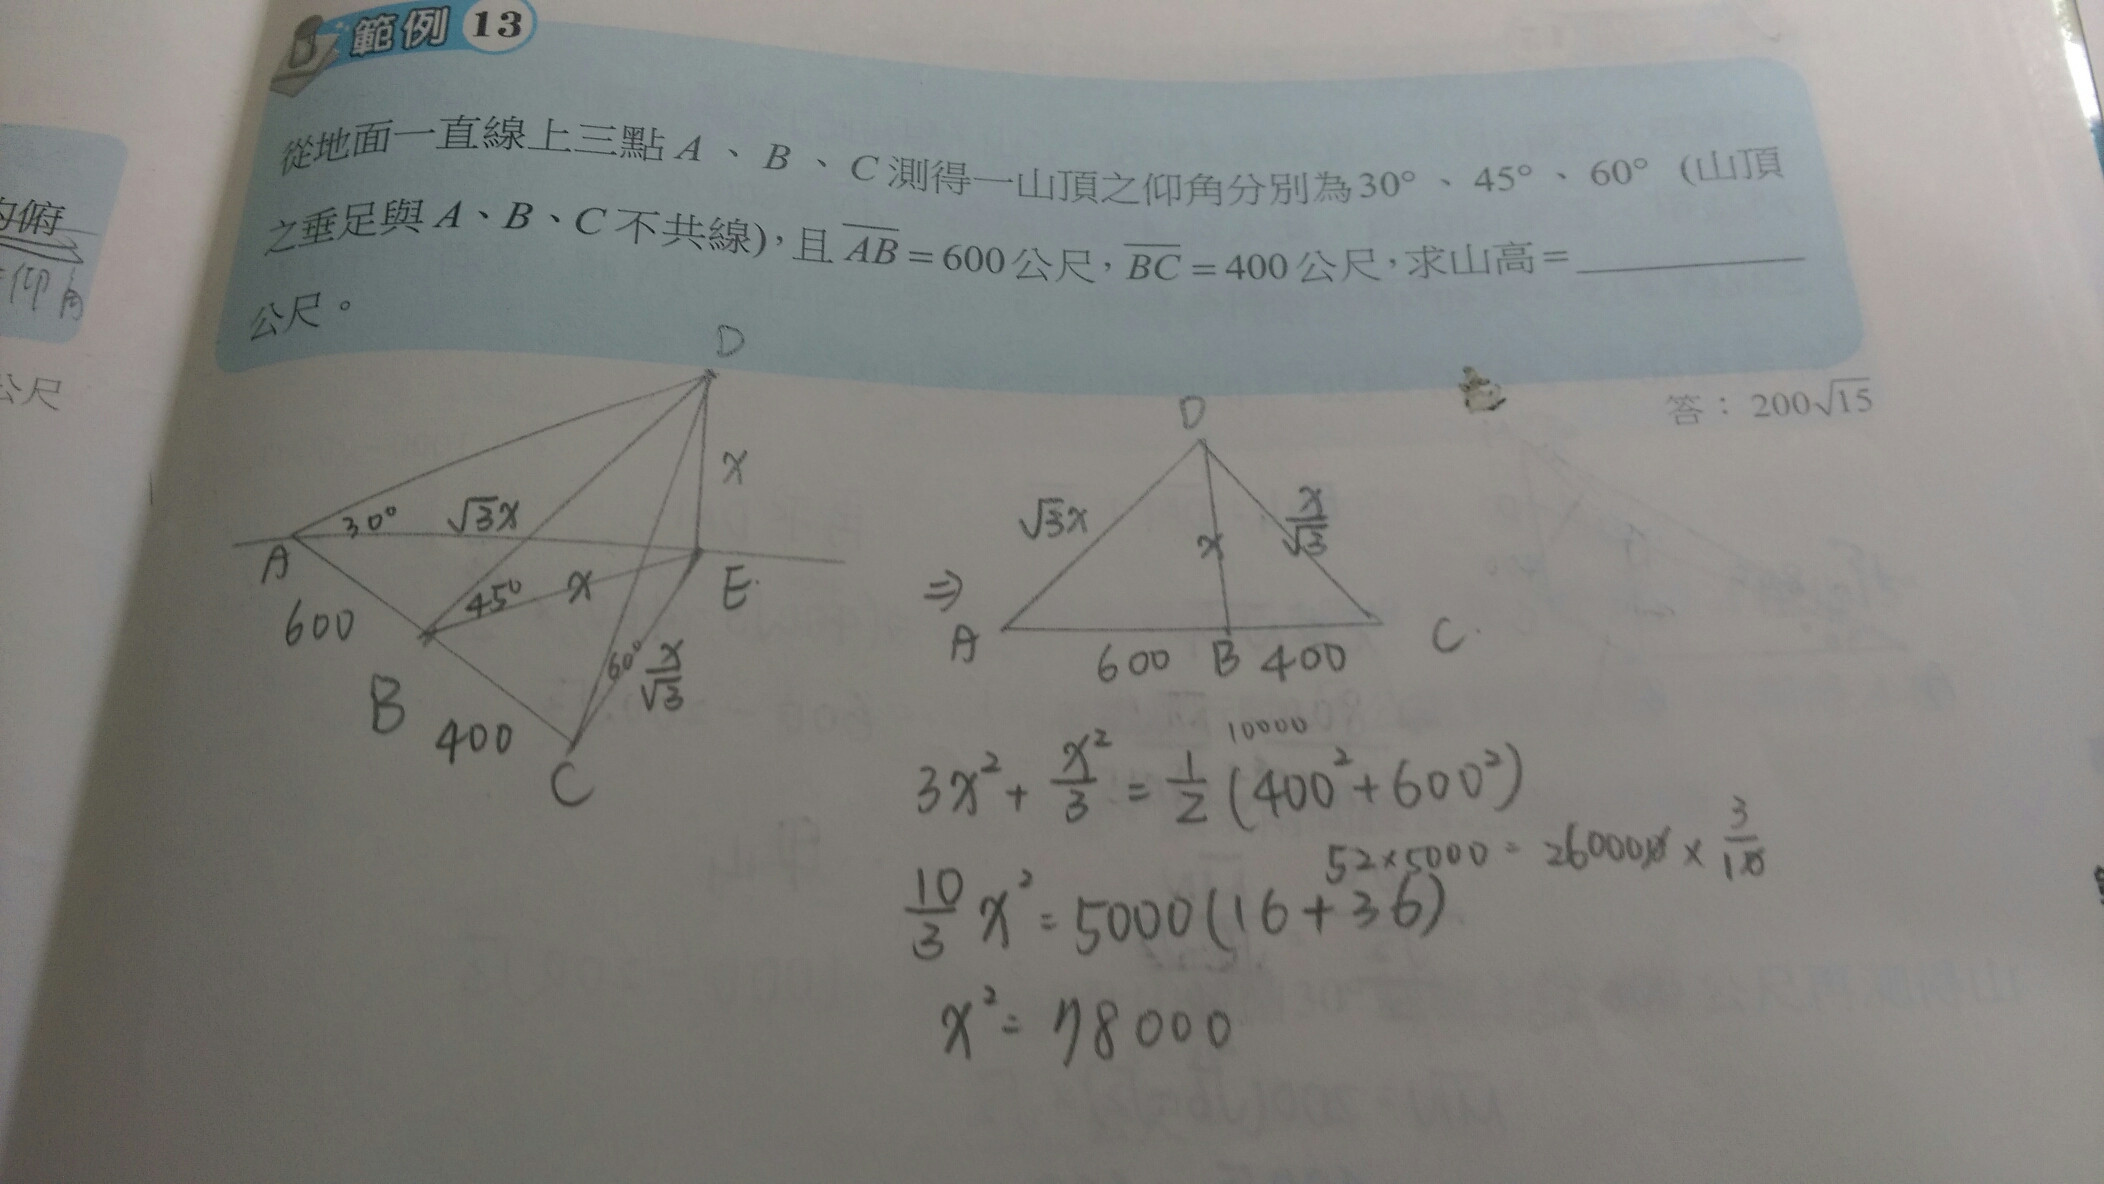 範例 13
從地面一直線上三點 A、B、C 測得一山頂之仰角分別為30°、45°、60° (山頂
之垂足與 A、B、C 不共線)，且 \overline{AB} = 600 公尺，\overline{BC} = 400 公尺，求山高 = ________
公尺。
答：200√15
的俯
仰角
公尺
D
x
30° √3x
A
E
45° x
600
B
60° x/√3
400
C
D
√3x x x/√3
⇒
A 600 B 400 C
10000
3x² + x²/3 = 1/2 (400² + 600²)
52×5000 = 260000 × 3/10
10/3 x² = 5000(16+36)
x² = 78000